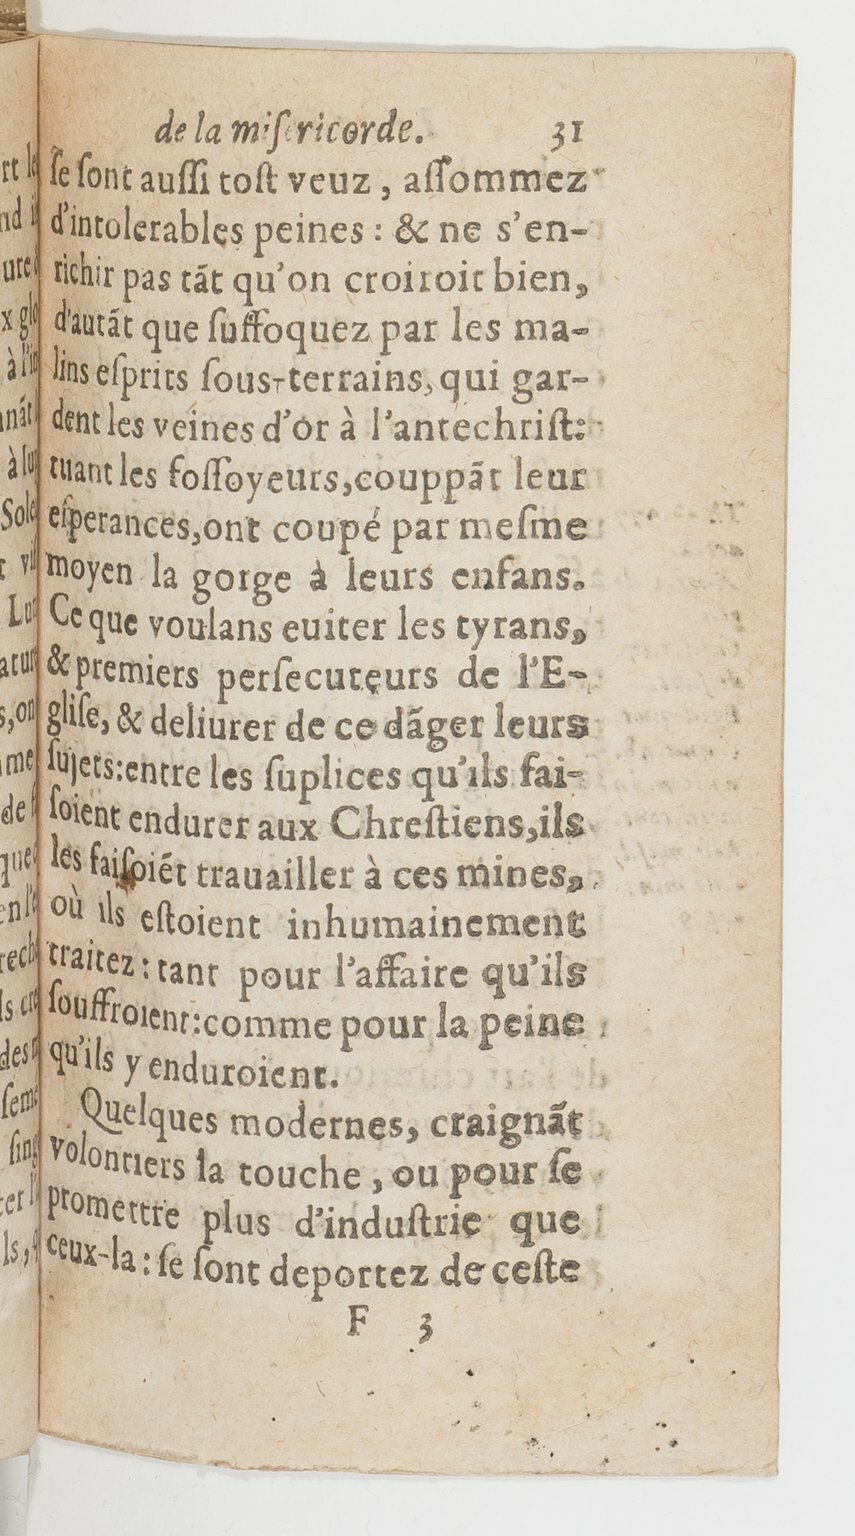 de la misericorde. 31
ſe ſont auſſi toſt veuz, aſſommez
d'intolerables peines : & ne s'en-
richir pas tãt qu'on croiroit bien,
d'autãt que ſuffoquez par les ma-
lins eſprits ſous-terrains, qui gar-
dent les veines d'or à l'antechriſt:
tuant les foſſoyeurs, couppãt leur
eſperances, ont coupé par meſme
moyen la gorge à leurs enfans.
Ce que voulans euiter les tyrans,
& premiers perſecuteurs de l'E-
gliſe, & deliurer de ce dãger leurs
ſujets: entre les ſuplices qu'ils fai-
ſoient endurer aux Chreſtiens, ils
les faiſoiẽt trauailler à ces mines,
où ils eſtoient inhumainement
traitez : tant pour l'affaire qu'ils
ſouffroient: comme pour la peine
qu'ils y enduroient.
Quelques modernes, craignãt
volontiers la touche, ou pour ſe
promettre plus d'induſtrie que
ceux-la : ſe ſont deportez de ceſte
F 3